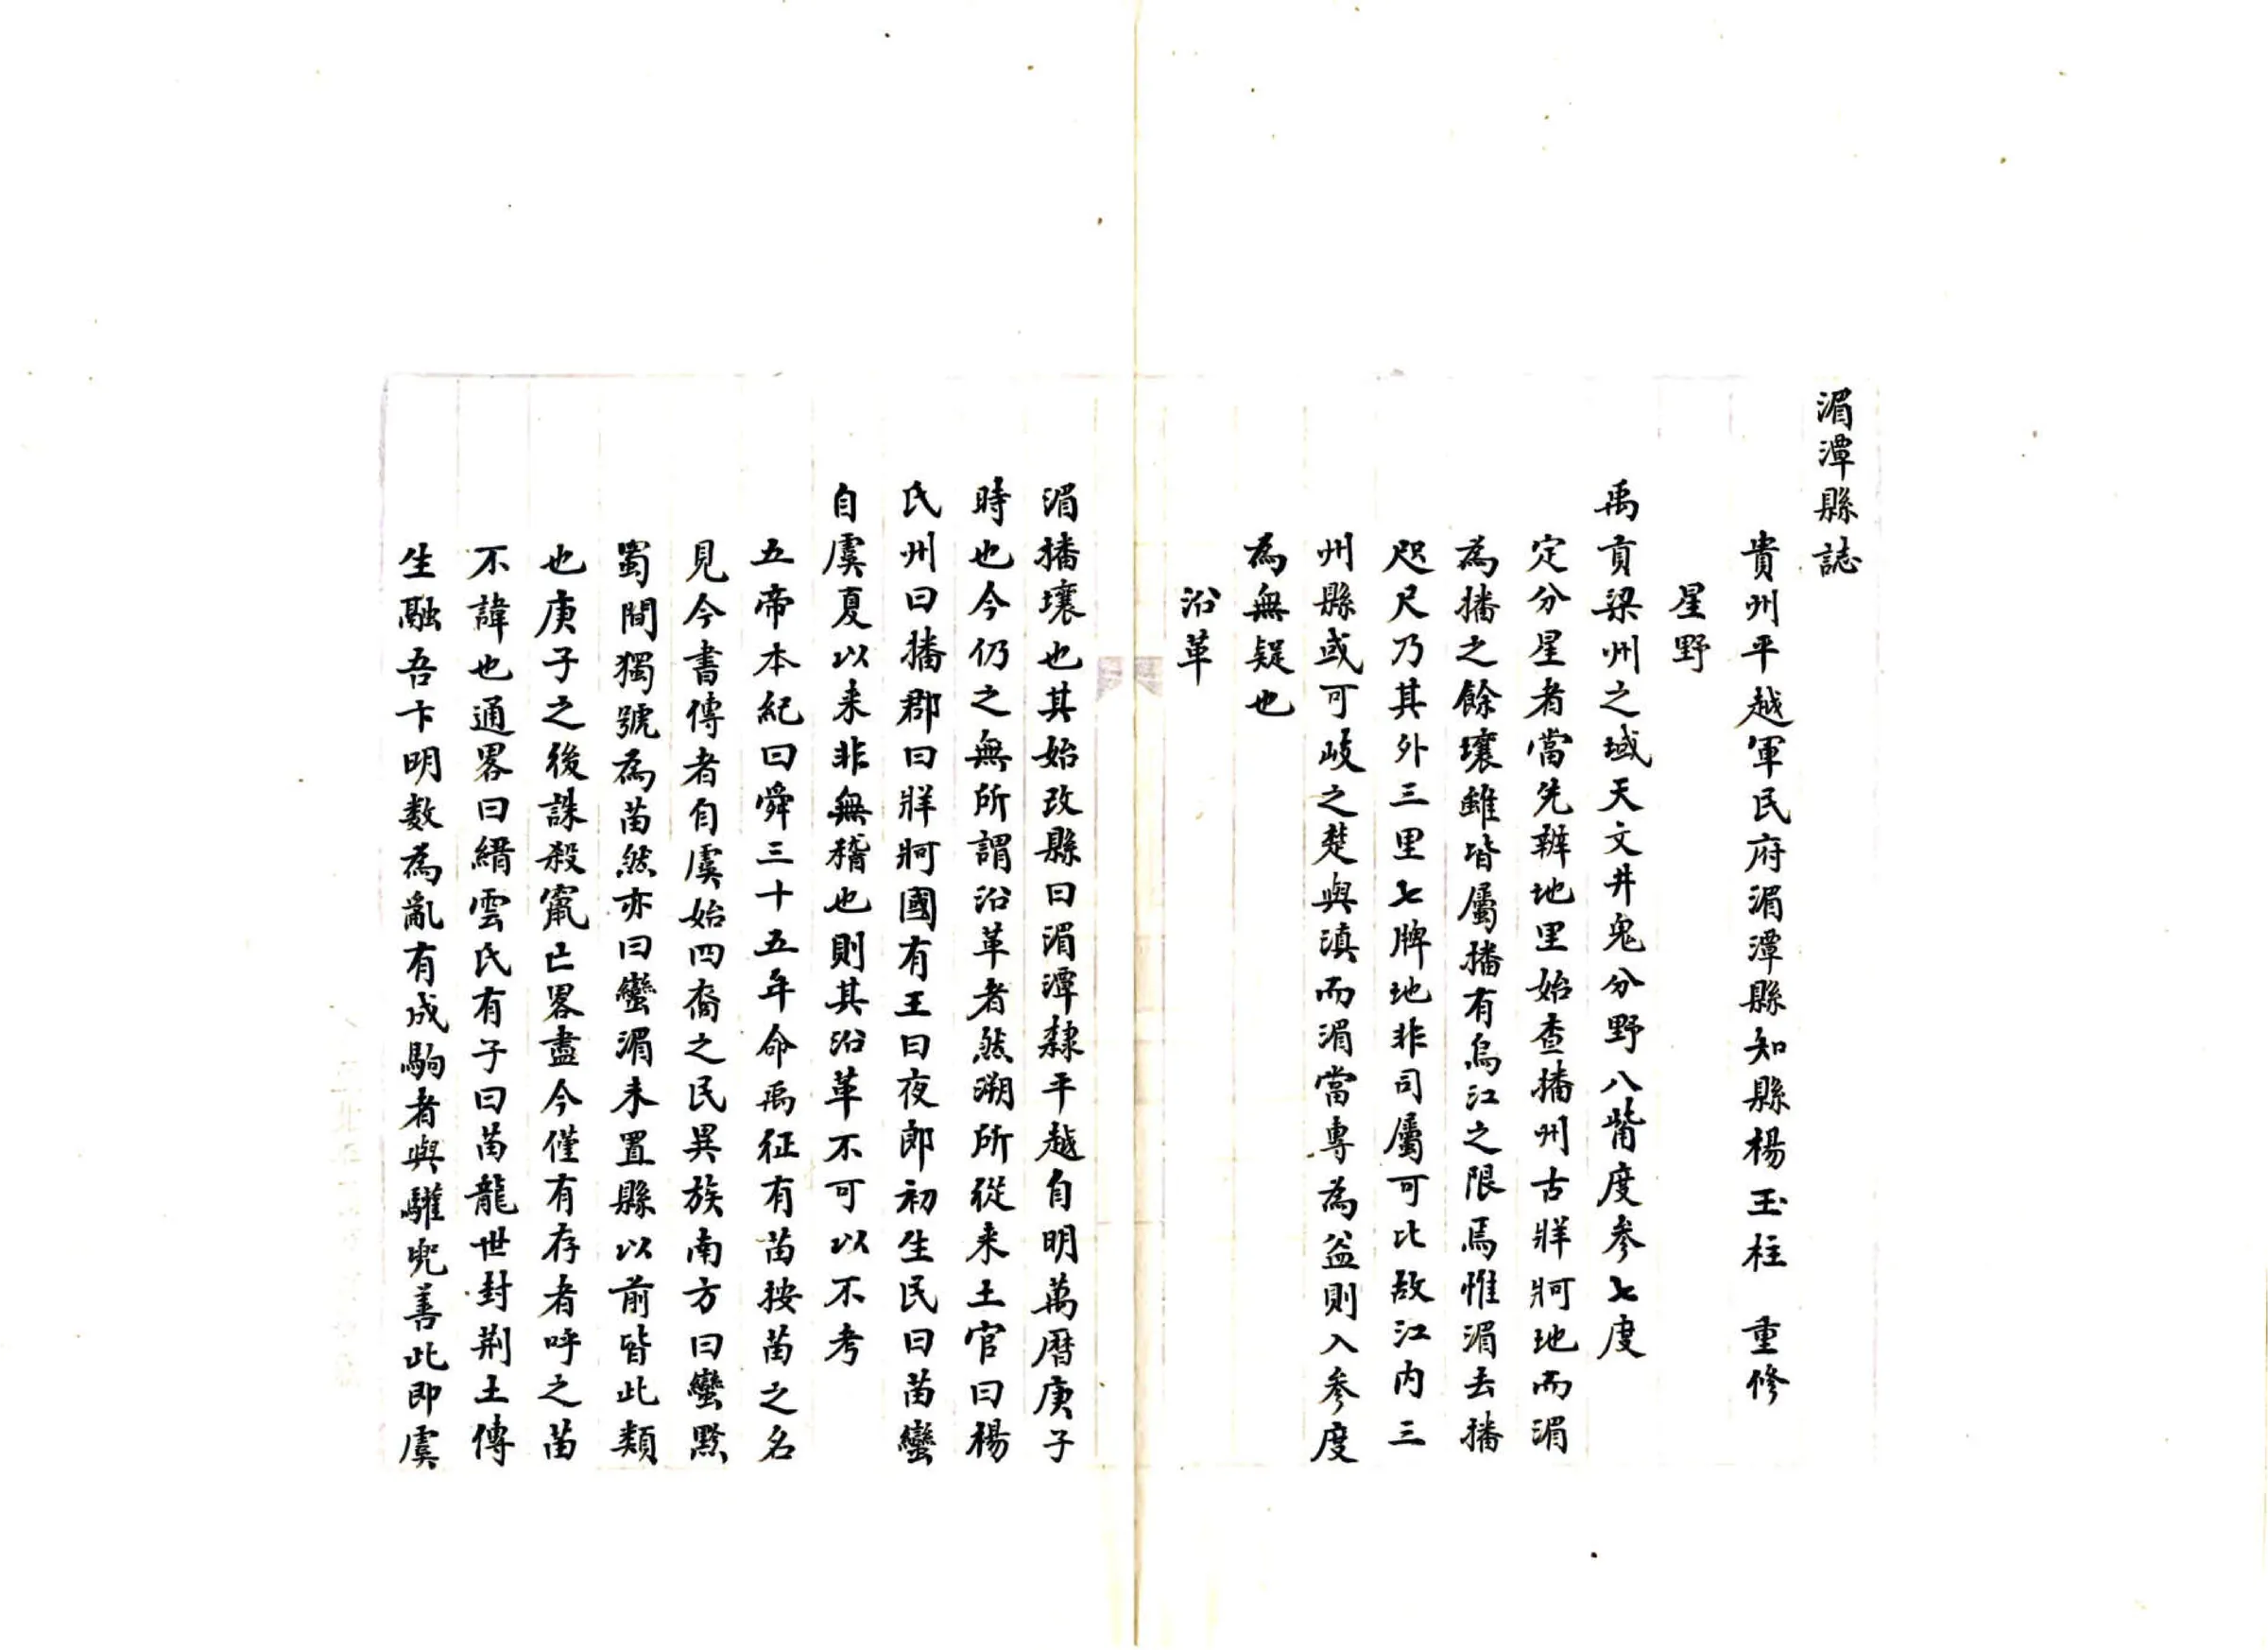 湄潭縣誌
貴州平越軍民府湄潭縣知縣楊玉柱　重修
星野
禹貢梁州之域天文井鬼分野八觜度參七度
定分星者當先辨地里始查播州古牂牁地而湄
為播之餘壤雖皆屬播有烏江之限焉惟湄去播
咫尺乃其外三里七牌地非司屬可比故江内三
州縣或可岐之楚與滇而湄當專為益則入參度
為無疑也
沿革
湄播壤也其始改縣曰湄潭隸平越自明萬曆庚子
時也今仍之無所謂沿革者然溯所從来土官曰楊
氏州曰播郡曰牂牁國有王曰夜郎初生民曰苗蠻
自虞夏以来非無稽也則其沿革不可以不考
五帝本紀曰舜三十五年命禹征有苗按苗之名
見今書傳者自虞始四裔之民異族南方曰蠻黔
蜀間獨號為苗然亦曰蠻湄未置縣以前皆此類
也庚子之後誅殺竄亡畧盡今僅有存者呼之苗
不諱也通畧曰縉雲氏有子曰苗龍世封荆土傳
生融吾卞明数為亂有成駒者與驩兜善此即虞